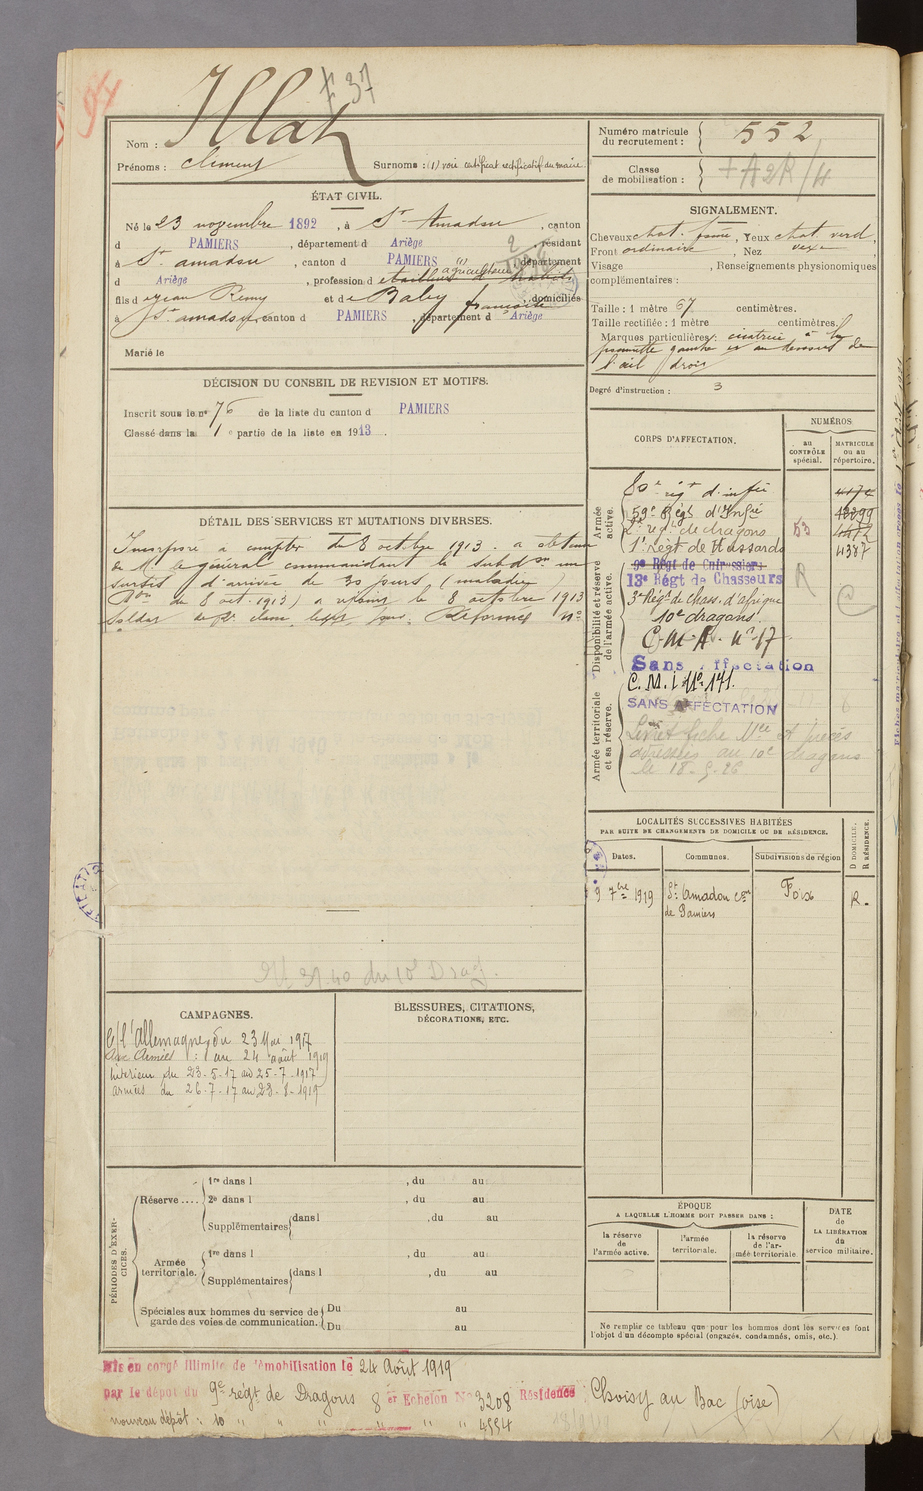 94
F 37
Nom : Illat
Prénoms : Clément
Surnoms : (1) voir certificat rectificatif du maire
ÉTAT CIVIL.
Né le 23 novembre 1892, à St Amadou, canton
d PAMIERS, département d Ariège, résidant
à St amadou, canton d PAMIERS, département
d Ariège, profession d (1) agriculteur
fils d Jean Rémy et de Baby françoise, domiciliés
à St amadou, canton d PAMIERS, département d Ariège
Marié le
DÉCISION DU CONSEIL DE REVISION ET MOTIFS.
Inscrit sous le nº 76 de la liste du canton d PAMIERS
Classé dans la 1e partie de la liste en 1913.
DÉTAIL DES SERVICES ET MUTATIONS DIVERSES.
Incorporé à compter du 8 octobre 1913. a obtenu
de Mr le général commandant la subdon un
sursis d'arrivée de 30 jours (maladie)
du 8 oct. 1913) a rejoint le 8 octobre 1913
Soldat de 2e classe Réformé nº
Nº 31.40 du 10e Drag.
CAMPAGNES.
C/ l'Allemagne, du 23 Mai 1917
Aux Armées : au 24 août 1919
Intérieur du 23-5-17 au 25-7-1917
armées du 26-7-17 au 23-8-1919
BLESSURES, CITATIONS,
DÉCORATIONS, ETC.
PÉRIODES D'EXERCICES.
Réserve ....
1re dans l , du au
2e dans l , du au
Supplémentaires dans l , du au
Armée territoriale.
1re dans l , du au
Supplémentaires dans l , du au
Spéciales aux hommes du service de
garde des voies de communication.
Du au
Du au
Mis en congé illimité de démobilisation le 24 Août 1919
par le dépôt du 9e régt de Dragons 8 er Echelon Nº 3208 Résidence Choisy au Bac (Oise)
nouveau dépôt : 10 " " " " " " 4554
Numéro matricule
du recrutement : 552
Classe
de mobilisation :
SIGNALEMENT.
Cheveux chat. foncé, Yeux chat verd,
Front ordinaire, Nez vexe
Visage , Renseignements physionomiques
complémentaires :
Taille : 1 mètre 67 centimètres.
Taille rectifiée : 1 mètre centimètres.
Marques particulières : cicatrice à la
pommette gauche et au dessous de
l'œil droit
Degré d'instruction : 3
CORPS D'AFFECTATION.
NUMÉROS
au
CONTRÔLE
spécial.
MATRICULE
ou au
répertoire.
Armée
active.
80e régt d'infie
59e Régt d'Infie
2e regt de dragons 53
1er Régt de Hussards 4377
Disponibilité et réserve
de l'armée active.
9e Régt de Cuirassiers
13e Régt de Chasseurs
3e Régt de Chass. d'afrique
10e dragons.
C.M.A. nº 17
Sans affectation
Armée territoriale
et sa réserve.
C.M.I. nº 171.
SANS AFFECTATION
Livret fiche Mle et pièces
adressés au 10e dragons
le 18.5.26
LOCALITÉS SUCCESSIVES HABITÉES
PAR SUITE DE CHANGEMENTS DE DOMICILE OU DE RÉSIDENCE.
Dates.
Communes.
Subdivisions de région
D DOMICILE.
R RÉSIDENCE.
9 7bre 1919 St Amadou con Foix R.
de Pamiers
ÉPOQUE
A LAQUELLE L'HOMME DOIT PASSER DANS :
la réserve
de
l'armée active.
l'armée
territoriale.
la réserve
de l'ar-
mée territoriale.
DATE
de
LA LIBÉRATION
du
service militaire.
Ne remplir ce tableau que pour les hommes dont les services font
l'objet d'un décompte spécial (engagés, condamnés, omis, etc.).